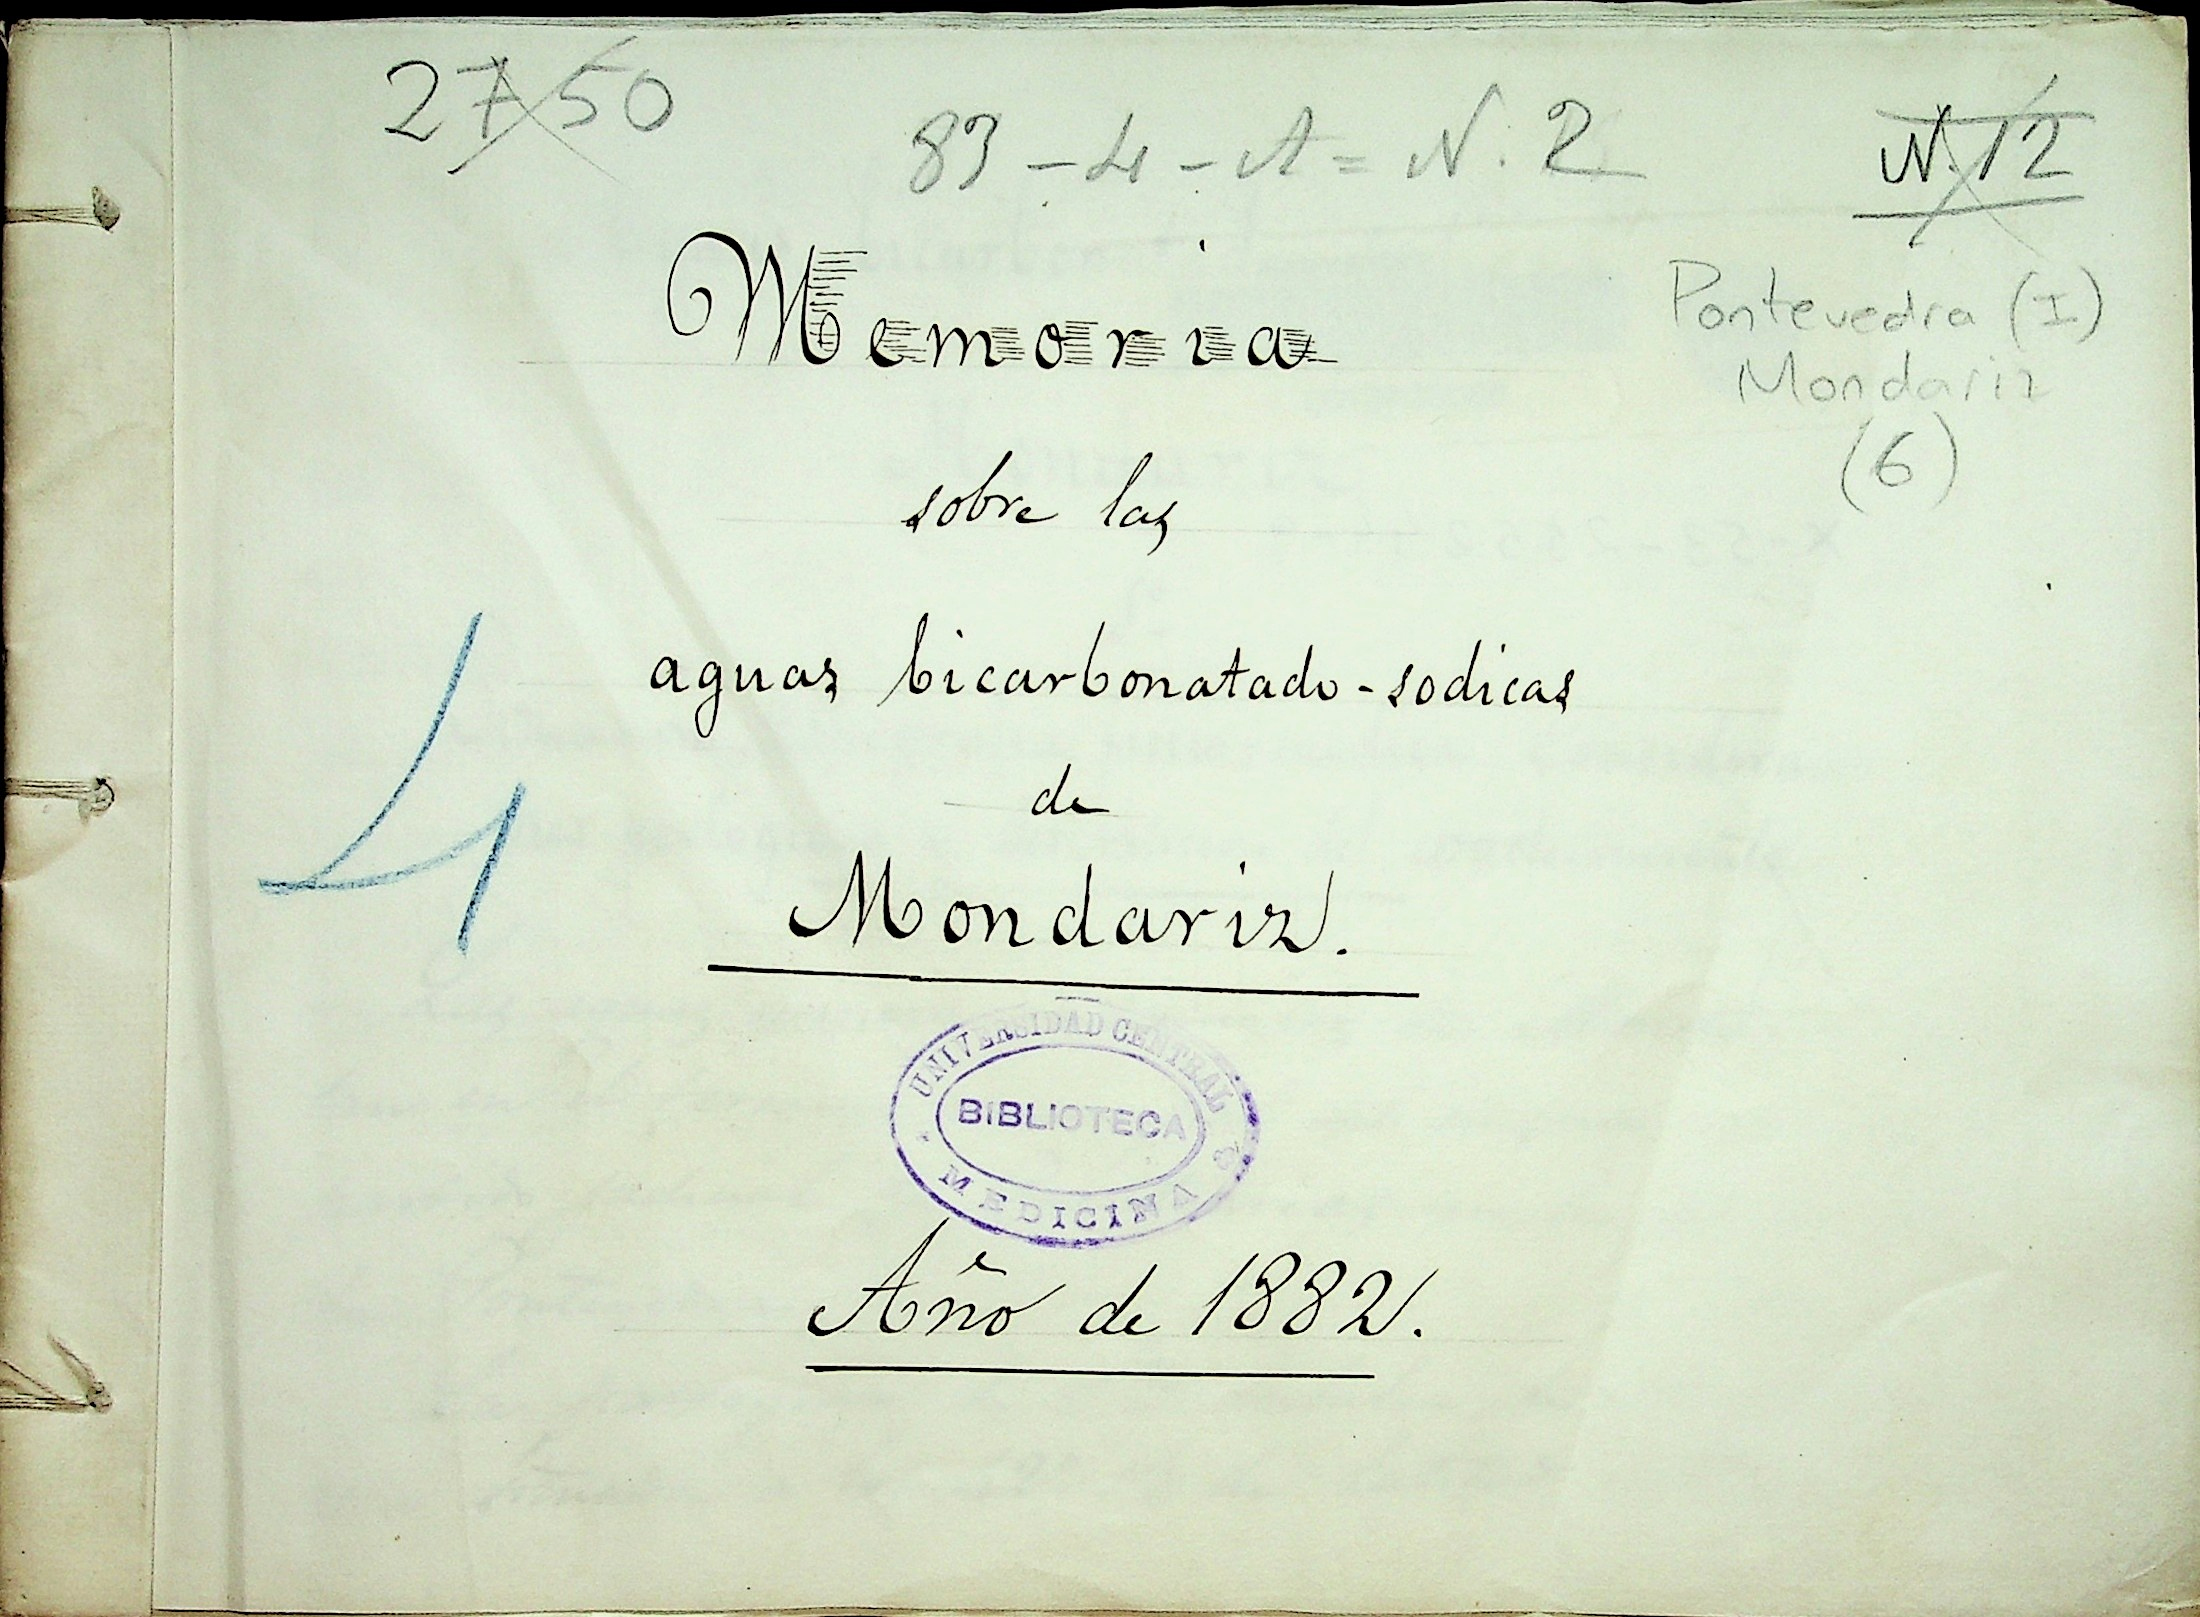 2750
83-4-A=N.2
N.12
Pontevedra (I)
Mondariz
(6)
Memoria
sobre las
aguas bicarbonatado-sodicas
de
Mondariz.
4
UNIVERSIDAD CENTRAL
BIBLIOTECA
MEDICINA
Año de 1882.